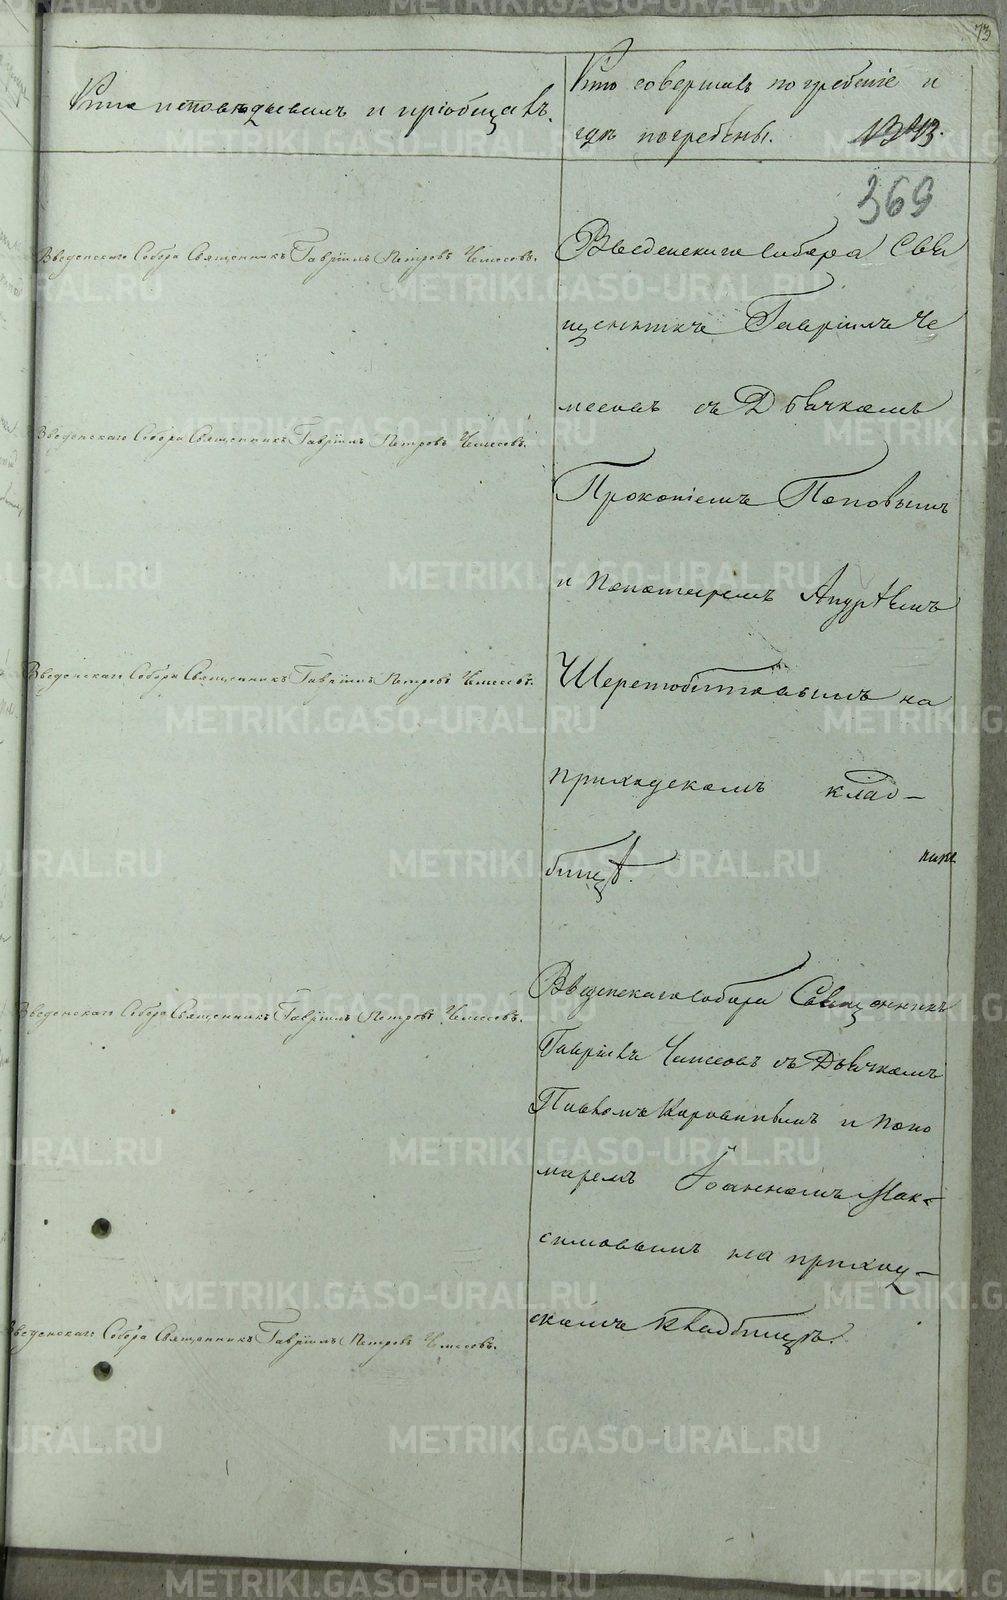 73
Кто исповѣдывалъ и пріобщалъ.
Кто совершалъ погребеніе и
гдѣ погребены.
369
Введенскаго Собора Священникъ Гавріилъ Петровъ Чемесовъ.
Введенскаго Собора Свя
щенникъ Гавріилъ Че
месовъ съ Дьячкомъ
Введенскаго Собора Священникъ Гавріилъ Петровъ Чемесовъ.
Прокопіемъ Поповымъ
и Пономаремъ Андреемъ
Введенскаго Собора Священникъ Гавріилъ Петровъ Чемесовъ.
на
приходскомъ клад-
бищѣ.
Введенскаго Собора Священникъ
Введенскаго Собора Священникъ Гавріилъ Петровъ Чемесовъ.
Гавріилъ Чемесовъ съ Дьячкомъ
и Поно
маремъ Іоанномъ Мак-
симовымъ на приход-
скомъ кладбищѣ.
Введенскаго Собора Священникъ Гавріилъ Петровъ Чемесовъ.
METRIKI.GASO-URAL.RU